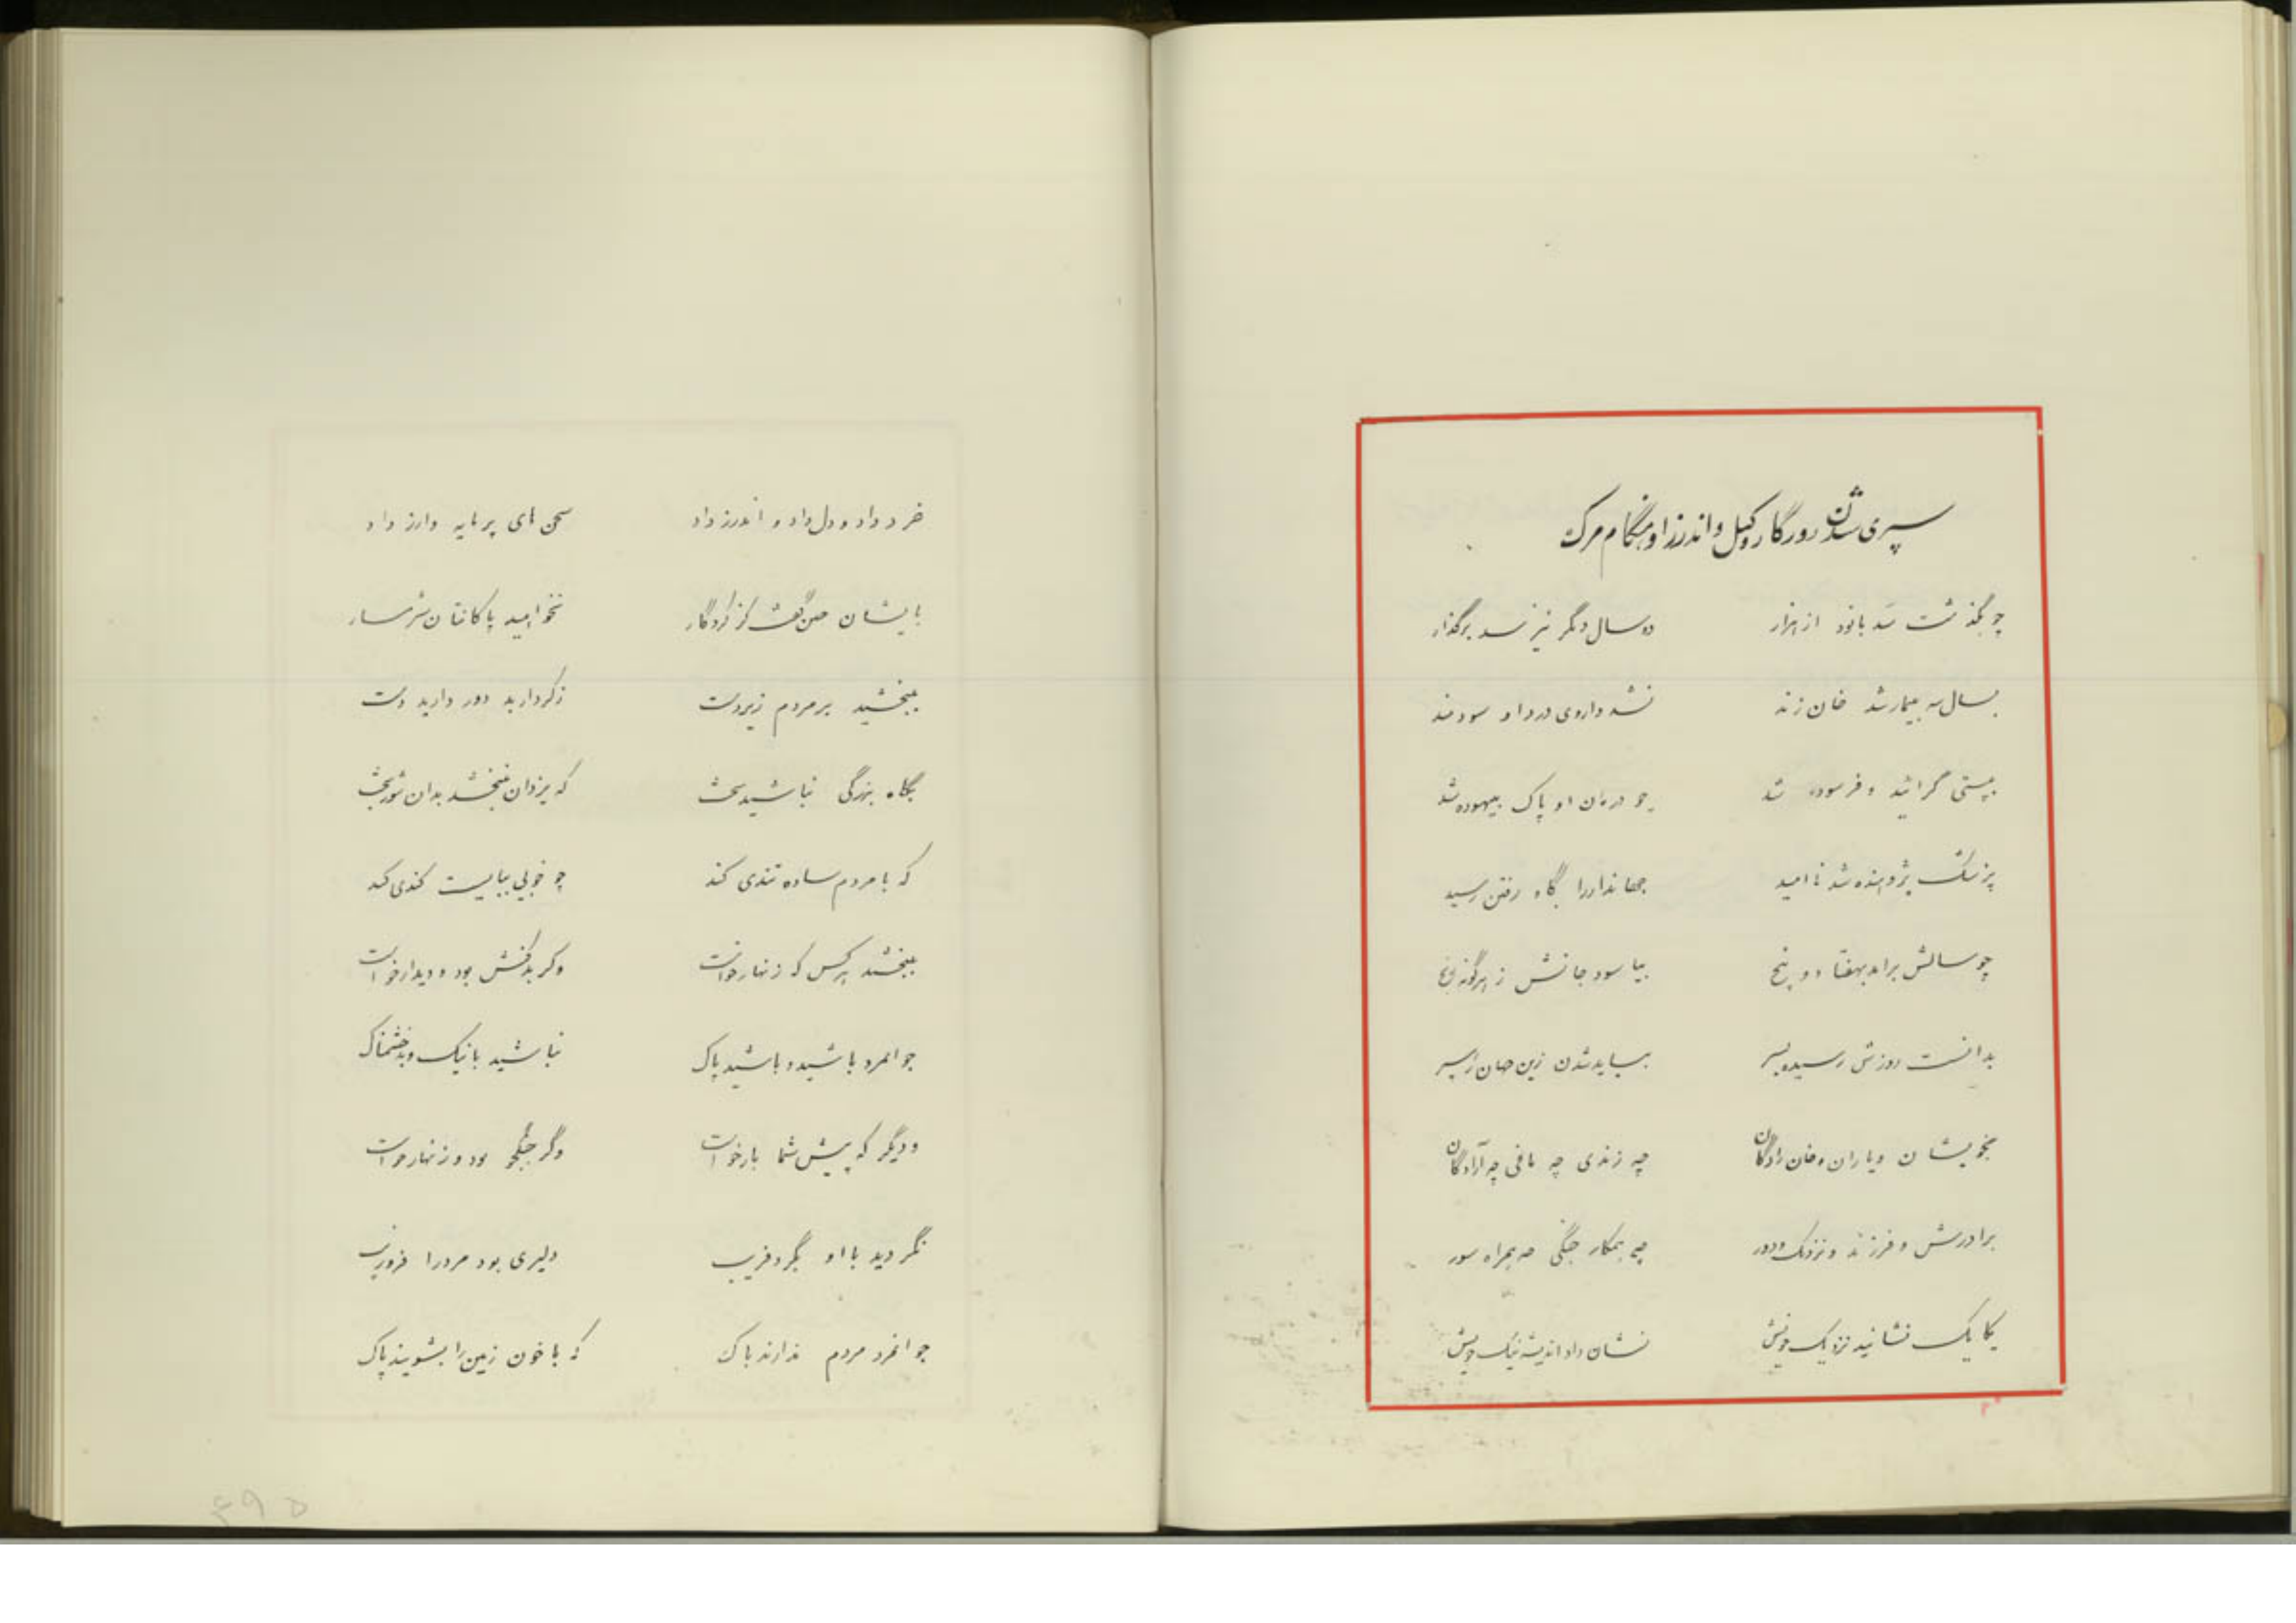 سپری شدن روزگار وکیل و اندرز او هنگام مرگ
چو بگذشت سد با نود از هزار ده سال دگر نیز سد برگذار
بسال سه بیمار شد خان زند نشد داروی درد او سودمند
بپستی گرائید و فرسوده شد چو درمان او پاک بیهوده شد
پزشک پژوهنده شد ناامید جهاندار را گاه رفتن رسید
چو سالش برآمد بهفتاد و پنج بیاسود جانش ز هرگونه رنج
بدانست روزش رسیده بسر بباید شدن زین جهان
بخویشان و یاران و خان زادگان چه زندی چه مافی چه آزادگان
برادرش و فرزند و نزدیک و دور چه همکار جنگی چه همراه سور
یکایک نشانید نزدیک خویش نشان داد اندیشه نیک خویش
خرد داد و دل داد و اندرز داد سخن های پرمایه و ارز داد
بایشان چنین گفت کز کردگار نخواهید پاکانتان شرمسار
ببخشید بر مردم زیردست ز کردار بد دور دارید دست
بگاه بزرگی نباشید سخت که یزدان نبخشد بدان شوربخت
که با مردم ساده تندی کند چو خوبی ببایست کندی کند
ببخشید هر کس که زنهار خواست وگر بدکنش بود و دیدار خواست
جوانمرد باشید و باشید پاک نباشید با نیک و بد خشمناک
و دیگر که پیش شما بار خواست وگر جنگجو بود و زنهار خواست
نگردید با او بگرد فریب دلیری بود مرد را فر و زیب
جوانمرد مردم ندارند باک که با خون زمین را بشویند پاک
۴۹۵